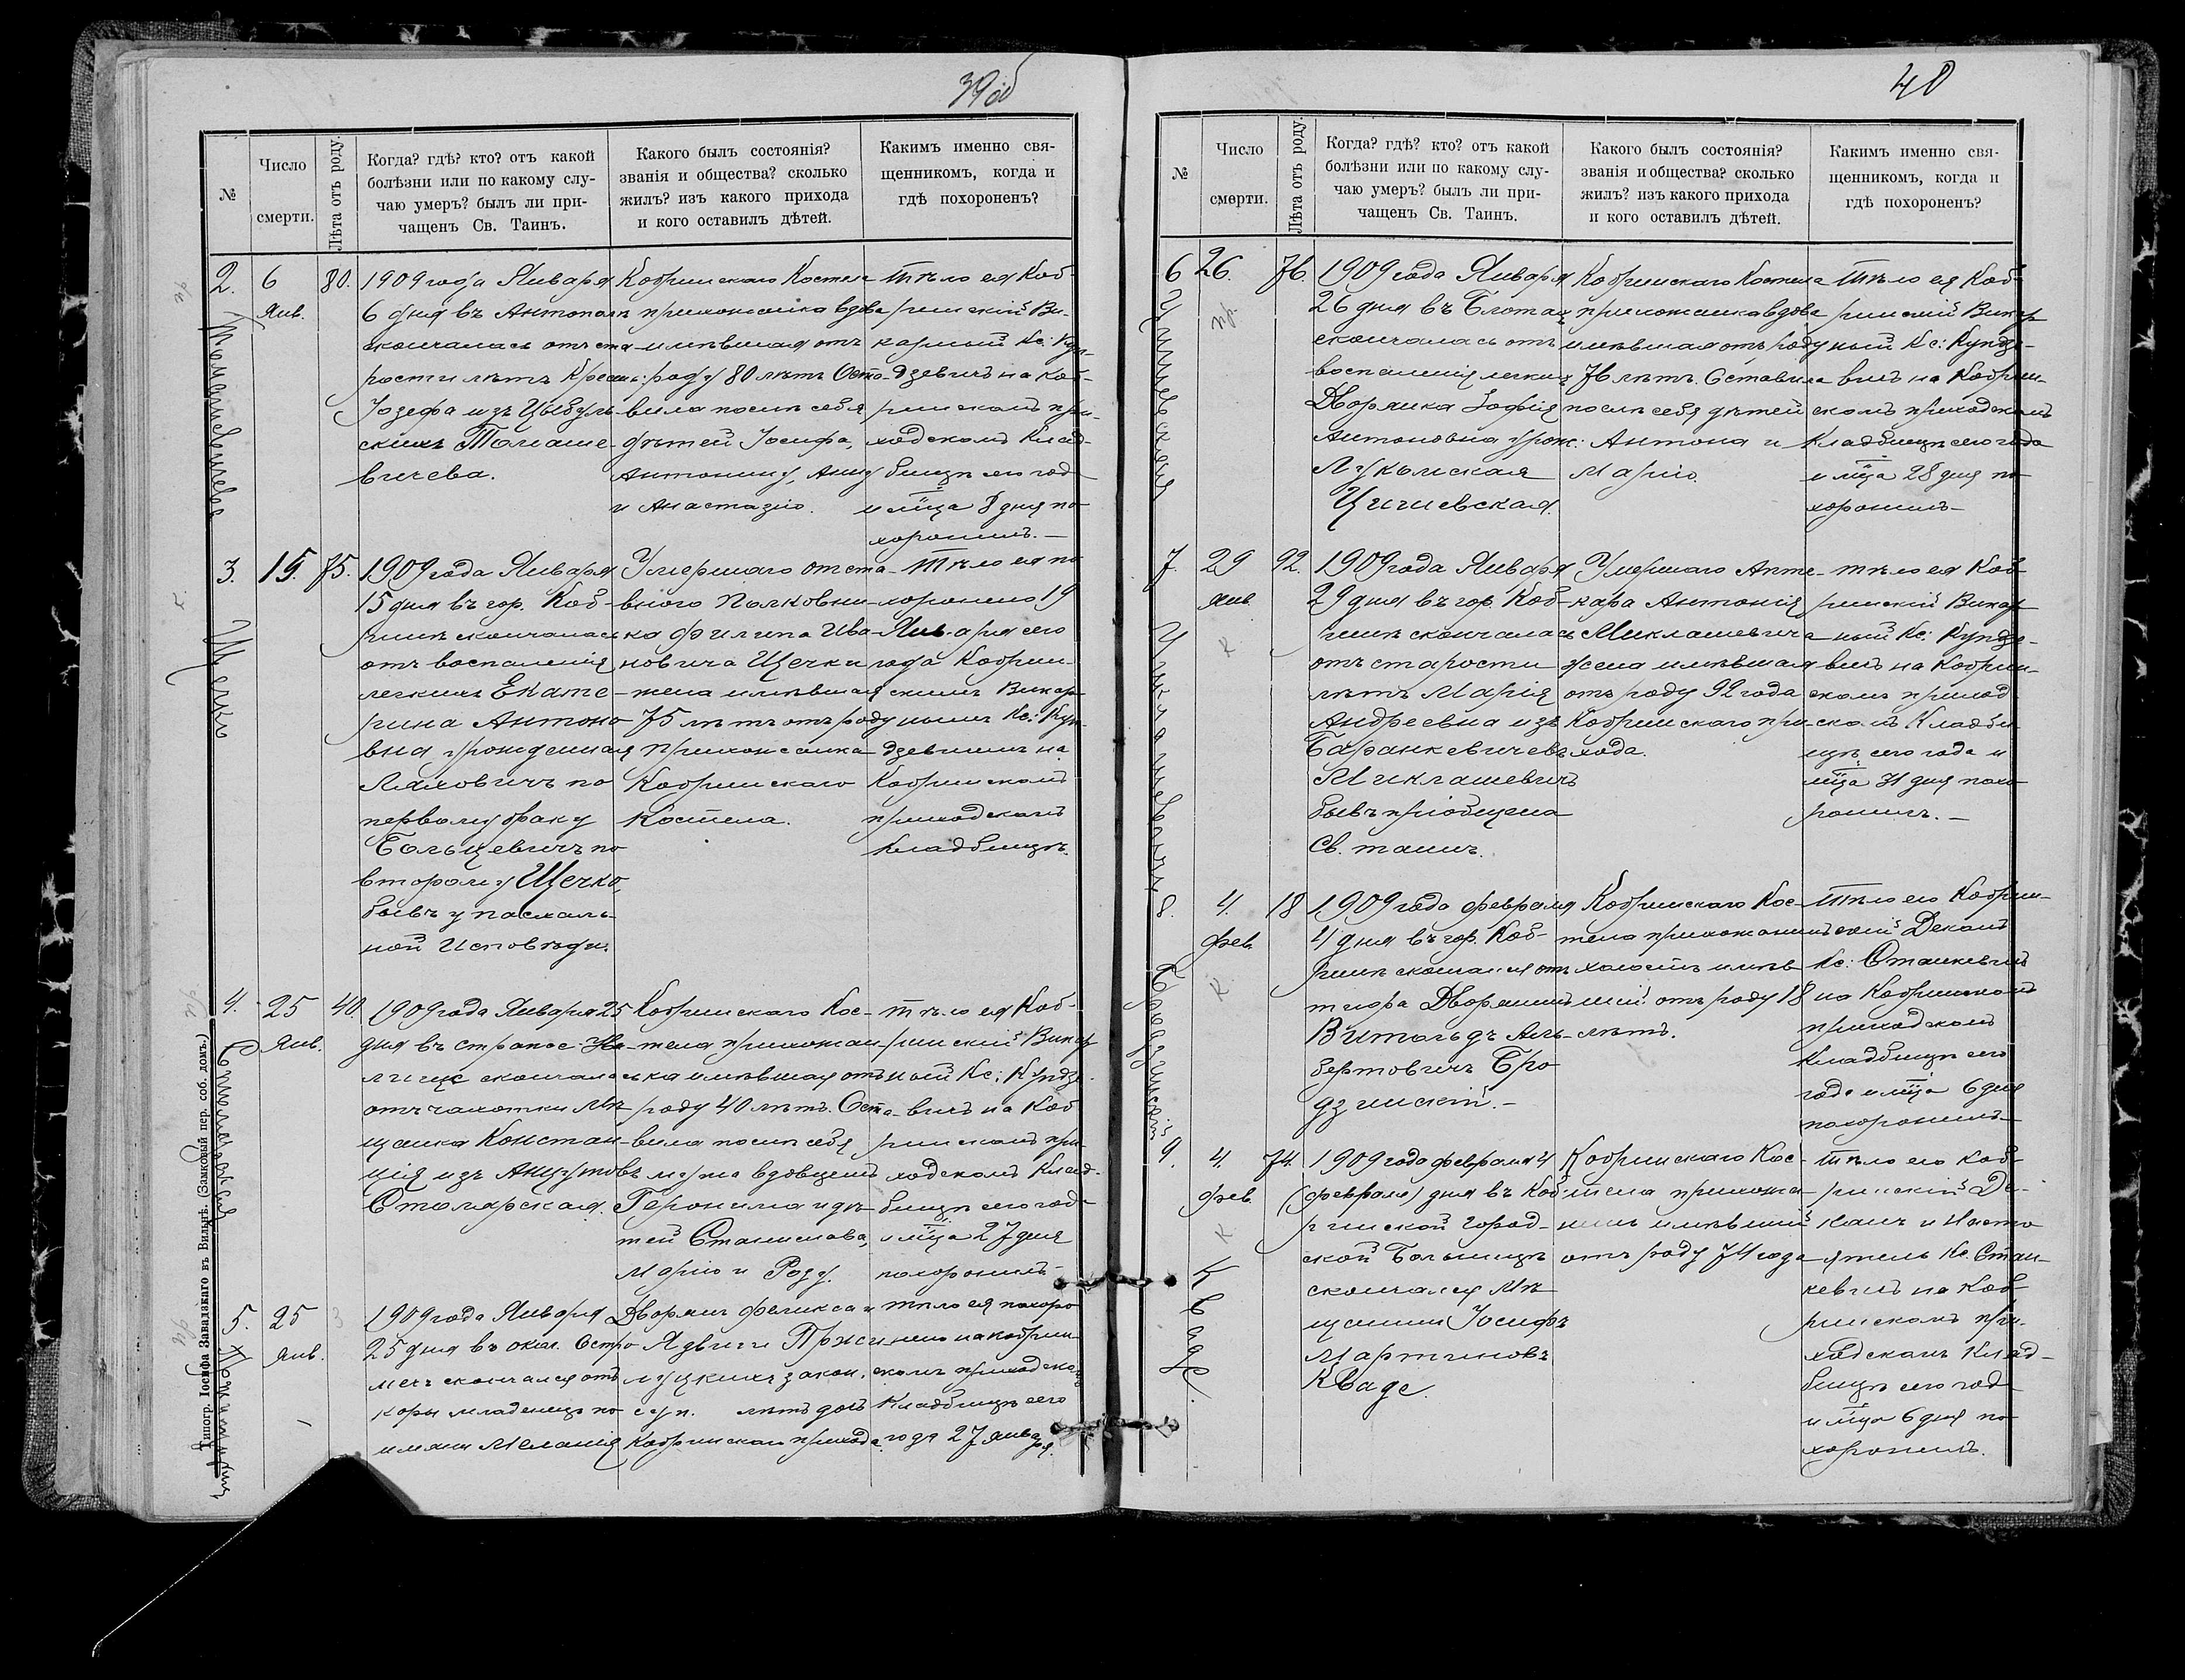 39 об
№
Число
смерти.
Лѣта отъ роду.
Когда? гдѣ? кто? отъ какой
болѣзни или по какому слу-
чаю умеръ? былъ ли при-
чащенъ Св. Таинъ.
Какого былъ состоянія?
званія и общества? сколько
жилъ? изъ какого прихода
и кого оставилъ дѣтей.
Какимъ именно свя-
щенникомъ, когда и
гдѣ похороненъ?
2.
6
Янв.
80.
1909 года Января
6 дня въ Антополѣ
скончалась отъ ста-
рости лѣтъ Крест:
Іозефа изъ Цыбуль-
скихъ Томаше-
вичева.
Кобринскаго Костела
прихожанка вдова
имѣвшая отъ
роду 80 лѣтъ Оста-
вила послѣ себя
дѣтей Іосифа,
Антонину, Анну
и Анастазію.
тѣло ея Коб-
ринскій Ви-
карный Кс: Кун-
дзевичъ на Коб-
ринскомъ при-
ходскомъ Клад-
бищѣ сего года
и мца 8 дня по-
хоронилъ.—
Томашевичева
3.
15.
75.
1909 года Января
15 дня въ гор. Коб-
ринѣ скончалась
отъ воспаленія
легкихъ Екате-
рина Антоно-
вна урожденная
Ляховичъ по
первому браку
Больцевичъ по
второму Щечко,
бывъ у пасхаль-
ной Исповѣди.
Умершаго отста-
вного Полковни-
ка Филипа Ива-
новича Щечки
жена имѣвшая
75 лѣтъ отъ роду
прихожанка
Кобринскаго
Костела.
тѣло ея по-
хоронено 19
Января сего
года Кобрин-
скимъ Викар-
нымъ Кс: Кун-
дзевичемъ на
Кобринскомъ
приходскомъ
Кладбищѣ.
Щечко
4.
25
Янв.
40.
1909 года Января 25
дня въ
скончалась
отъ чахотки Мѣ-
щанка Констан-
ція изъ Анцутовъ
Столярская.
Кобринскаго Кос-
тела прихожан-
ка имѣвшая отъ
роду 40 лѣтъ. Оста-
вила послѣ себя
мужа вдовцемъ
Геронима и дѣ-
тей Станислава,
Марію и Розу.
тѣло ея Коб-
ринскій Викар-
ный Кс: Кундзе-
вичъ на Коб-
ринскомъ при-
ходскомъ Клад-
бищѣ сего года
и мца 27 дня
похоронилъ—
Столярская
5.
25
Янв.
1909 года Января
25 дня въ окол. Остро-
мечъ скончался отъ
коры младенецъ по
имени Меланія
Дворянъ Феликса и
Ядвиги
закон.
суп. лѣтъ
Кобринскаго прихода
тѣло ея похоро-
нено на Кобрин-
скомъ приходско
Кладбищѣ сего
года 27 Января.
Типогр. Іосифа Завадзкаго въ Вильнѣ. (Замковый пер. соб. домъ.)
40
№
Число
смерти.
Лѣта отъ роду.
Когда? гдѣ? кто? отъ какой
болѣзни или по какому слу-
чаю умеръ? былъ ли при-
чащенъ Св. Таинъ.
Какого былъ состоянія?
званія и общества? сколько
жилъ? изъ какого прихода
и кого оставилъ дѣтей.
Какимъ именно свя-
щенникомъ, когда и
гдѣ похороненъ?
6
26.
76.
1909 года Января
26 дня въ Блотахъ
скончалась отъ
воспаленія легкихъ
Дворянка Зофія
Антоновна урож:
Цичневская.
Кобринскаго Костела
прихожанка вдова
имѣвшая отъ роду
76 лѣтъ. Оставила
послѣ себя дѣтей
Антона и
Марію.
тѣло ея Коб-
ринскій Викар-
ный Кс: Кундзе-
вичъ на Кобрин-
скомъ приходскомъ
Кладбищѣ сего года
и мца 28 дня по-
хоронилъ—
7.
29
Янв.
92.
1909 года Января
29 дня въ гор. Коб-
ринѣ скончалась
отъ старости
лѣтъ Марія
Андреевна изъ
Баранкевичевъ
Миклашевичъ
бывъ пріобщена
Св. таинъ.
Умершаго Апте-
каря Антонія
Миклашевича
жена имѣвшая
отъ роду 92 года
Кобринскаго при-
хода.
тѣло ея Коб-
ринскій Викар-
ный Кс: Кундзе-
вичъ на Кобрин-
скомъ приход-
скомъ Кладби-
щѣ сего года и
мца 31 дня похо-
ронилъ.—
Миклашевичъ
8.
4.
Фев.
18
1909 года Февраля
4 дня въ гор. Коб-
ринѣ скончался отъ
тифа Дворянинъ
Витольдъ Аль-
бертовичъ Бро-
дзинскій.—
Кобринскаго Кос-
тела прихожанинъ
холостъ имѣв-
шій отъ роду 18
лѣтъ.
тѣло его Кобрин-
скій Деканъ
Кс: Станкевичъ
на Кобринскомъ
приходскомъ
Кладбищѣ сего
года и мца 6 дня
похоронилъ—
Бродзинскій
9.
4.
Фев.
74.
1909 года Февраля 4
(Февраля) дня въ Коб-
ринской Город-
ской Больницѣ
скончался Мѣ-
щанинъ Іосифъ
Мартиновъ
Кваде.
Кобринскаго Кос-
тела прихожа-
нинъ имѣвшій
отъ роду 74 года
тѣло его Коб-
ринскій Де-
канъ и Насто-
ятель Кс. Стан-
кевичъ на Коб-
ринскомъ при-
ходскомъ Клад-
бищѣ сего года
и мца 6 дня по-
хоронилъ.
Кваде.